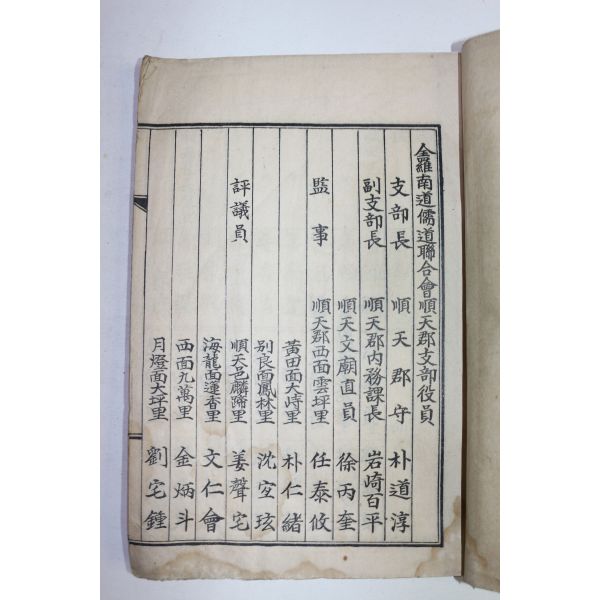 全羅南道儒道聯合會順天郡支部役員
支部長 順天郡守 朴道淳
副支部長 順天郡內務課長 岩崎百平
順天文廟直員 徐丙奎
監事 順天郡西面雲坪里 任泰攸
黃田面大峙里 朴仁緒
別良面鳳林里 沈宜玹
評議員 順天邑麟蹄里 姜聲宅
海龍面蓮香里 文仁會
西面九萬里 金炳斗
月燈面大坪里 劉宅鍾